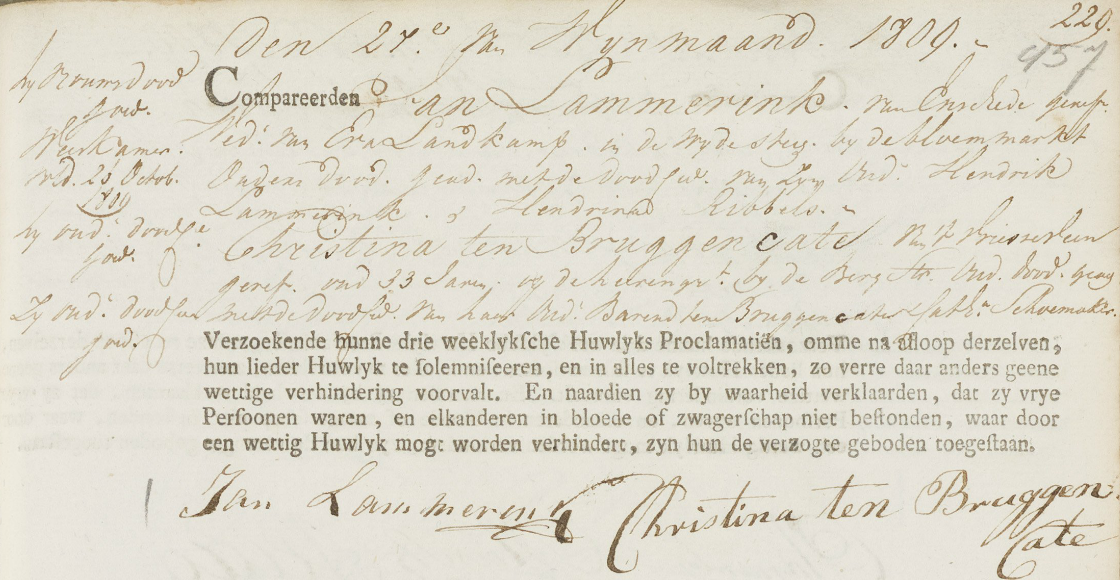 229.
957
Den 27.e van Wynmaand. 1809.
Compareerden Jan Lammerink. van Enschede geref.
Wed.r van Eva Landkamp. in de Wyde steeg. by de bloemmarkt
Ouders dood. geas. met de Doodced. van Zyn Oud.s Hendrik
Lammerink. & Hendrina Ribbels.
Christina ten Bruggen Cate van 't Vriesseveen
geref. oud 33 Jaren. op de heerengr.t by de Berg Str. Oud. dood. geas
met de Doodced. van haar Oud.s Barend ten Bruggen Cate & Cath.a Schoemaker.
hy vrouws dood
goed.
Weeskamer.
vld. 25 Octob.
1809
hy oud.s doodce
goed.
Zy oud.s doodce
goed.
Verzoekende hunne drie weeklyksche Huwlyks Proclamatiën, omme na afloop derzelven,
hun lieder Huwlyk te solemniseeren, en in alles te voltrekken, zo verre daar anders geene
wettige verhindering voorvalt. En naardien zy by waarheid verklaarden, dat zy vrye
Persoonen waren, en elkanderen in bloede of zwagerschap niet bestonden, waar door
een wettig Huwlyk mogt worden verhindert, zyn hun de verzogte geboden toegestaan.
Jan Lammerenk
Christina ten Bruggen
Cate